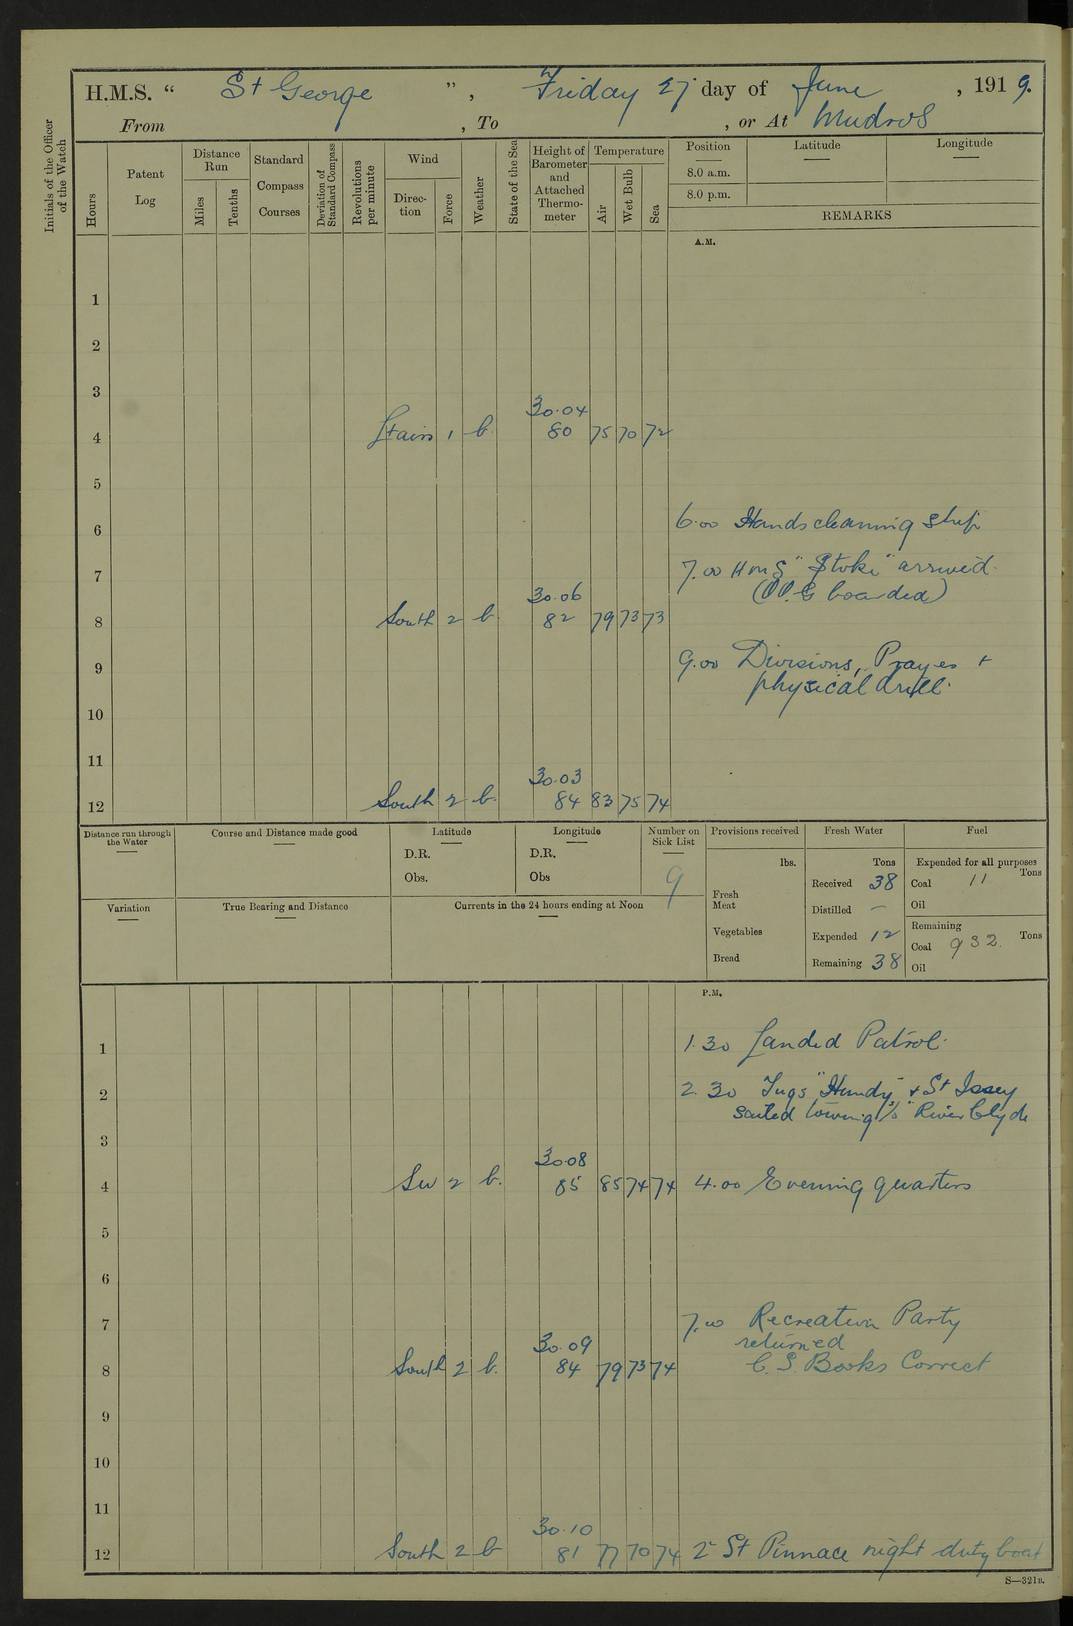 H.M.S. “ St George ” , Friday 27 day of June , 1919.
From , To , or At Mudros
Initials of the Officer of the Watch
Hours
Patent Log
Distance Run
Miles
Tenths
Standard Compass Courses
Deviation of Standard Compass
Revolutions per minute
Wind
Direction
Force
Weather
State of the Sea
Height of Barometer and Attached Thermometer
Temperature
Air
Wet Bulb
Sea
Position
8.0 a.m.
8.0 p.m.
Latitude
Longitude
REMARKS
A.M.
1
2
3
30.04
4 1 b. 80 75 70 72
5
6 6.00 Hands cleaning ship
7 7.00 HMS "Stoke" arrived.
30.06 boarded)
8 South 2 b 82 79 73 73
9 9.00 Divisions, Prayers +
physical drill.
10
11
30.03
12 South 2 b. 84 83 75 74
Distance run through the Water
Course and Distance made good
Latitude
D.R.
Obs.
Longitude
D.R.
Obs
Number on Sick List
9
Provisions received
lbs.
Fresh Meat
Vegetables
Bread
Fresh Water
Tons
Received 38
Distilled —
Expended 12
Remaining 38
Fuel
Expended for all purposes
Coal 11 Tons
Oil
Remaining
Coal 932 Tons
Oil
Variation
True Bearing and Distance
Currents in the 24 hours ending at Noon
P.M.
1 1.30 Landed Patrol.
2 2.30 Tugs "Hundy" + St Issey
sailed towing s/s "River Clyde
3
30.08
4 SW 2 b. 85 85 74 74 4.00 Evening quarters
5
6
7 7.00 Recreation Party
30.09 returned
8 South 2 b. 84 79 73 74 C.S. Books Correct
9
10
11
30.10
12 South 2 b 81 77 70 74 2nd St Pinnace night duty boat
S—321B.